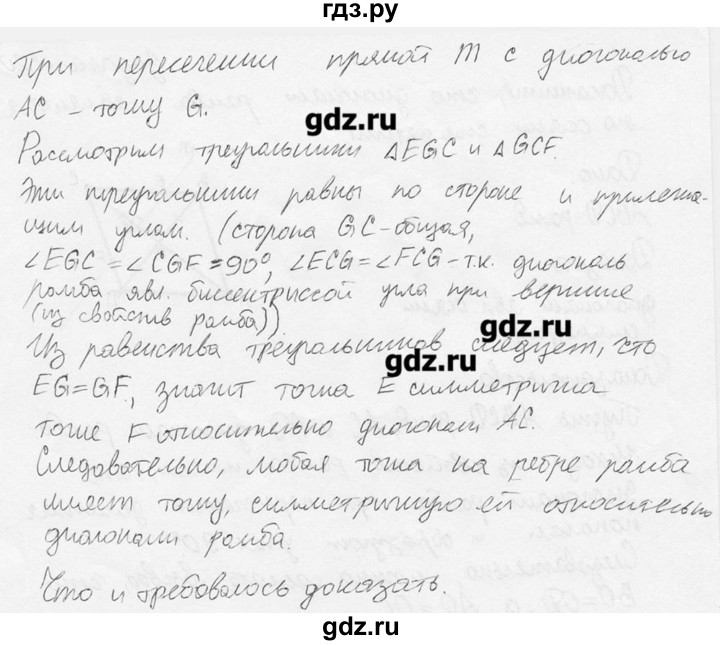 гдз.ру
При пересечении прямой m с диагональю
AC – точку G.
gdz.ru
Рассмотрим треугольники △EGC и △GCF.
Эти треугольники равны по стороне и прилежа-
щим углам. (сторона GC-общая,
∠EGC = ∠CGF = 90°, ∠ECG = ∠FCG – т.к. диагональ
ромба явл. биссектриссой угла при вершине
(из свойств ромба)).
gdz.ru
Из равенства треугольников следует, что
gdz.ru
EG = GF, значит точка E симметрична
точке F относительно диагонали AC.
Следовательно, любая точка на ребре ромба
имеет точку, симметричную ей относительно
диагонали ромба.
Что и требовалось доказать.
gdz.ru